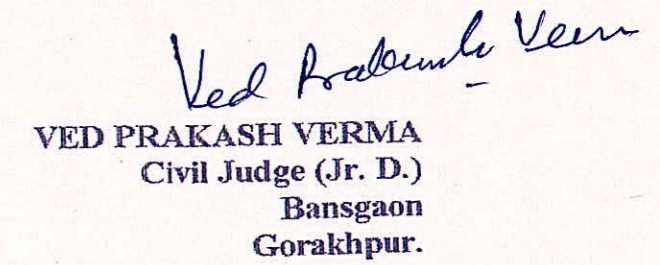 Ved Prakash Verm
VED PRAKASH VERMA
Civil Judge (Jr. D.)
Bansgaon
Gorakhpur.